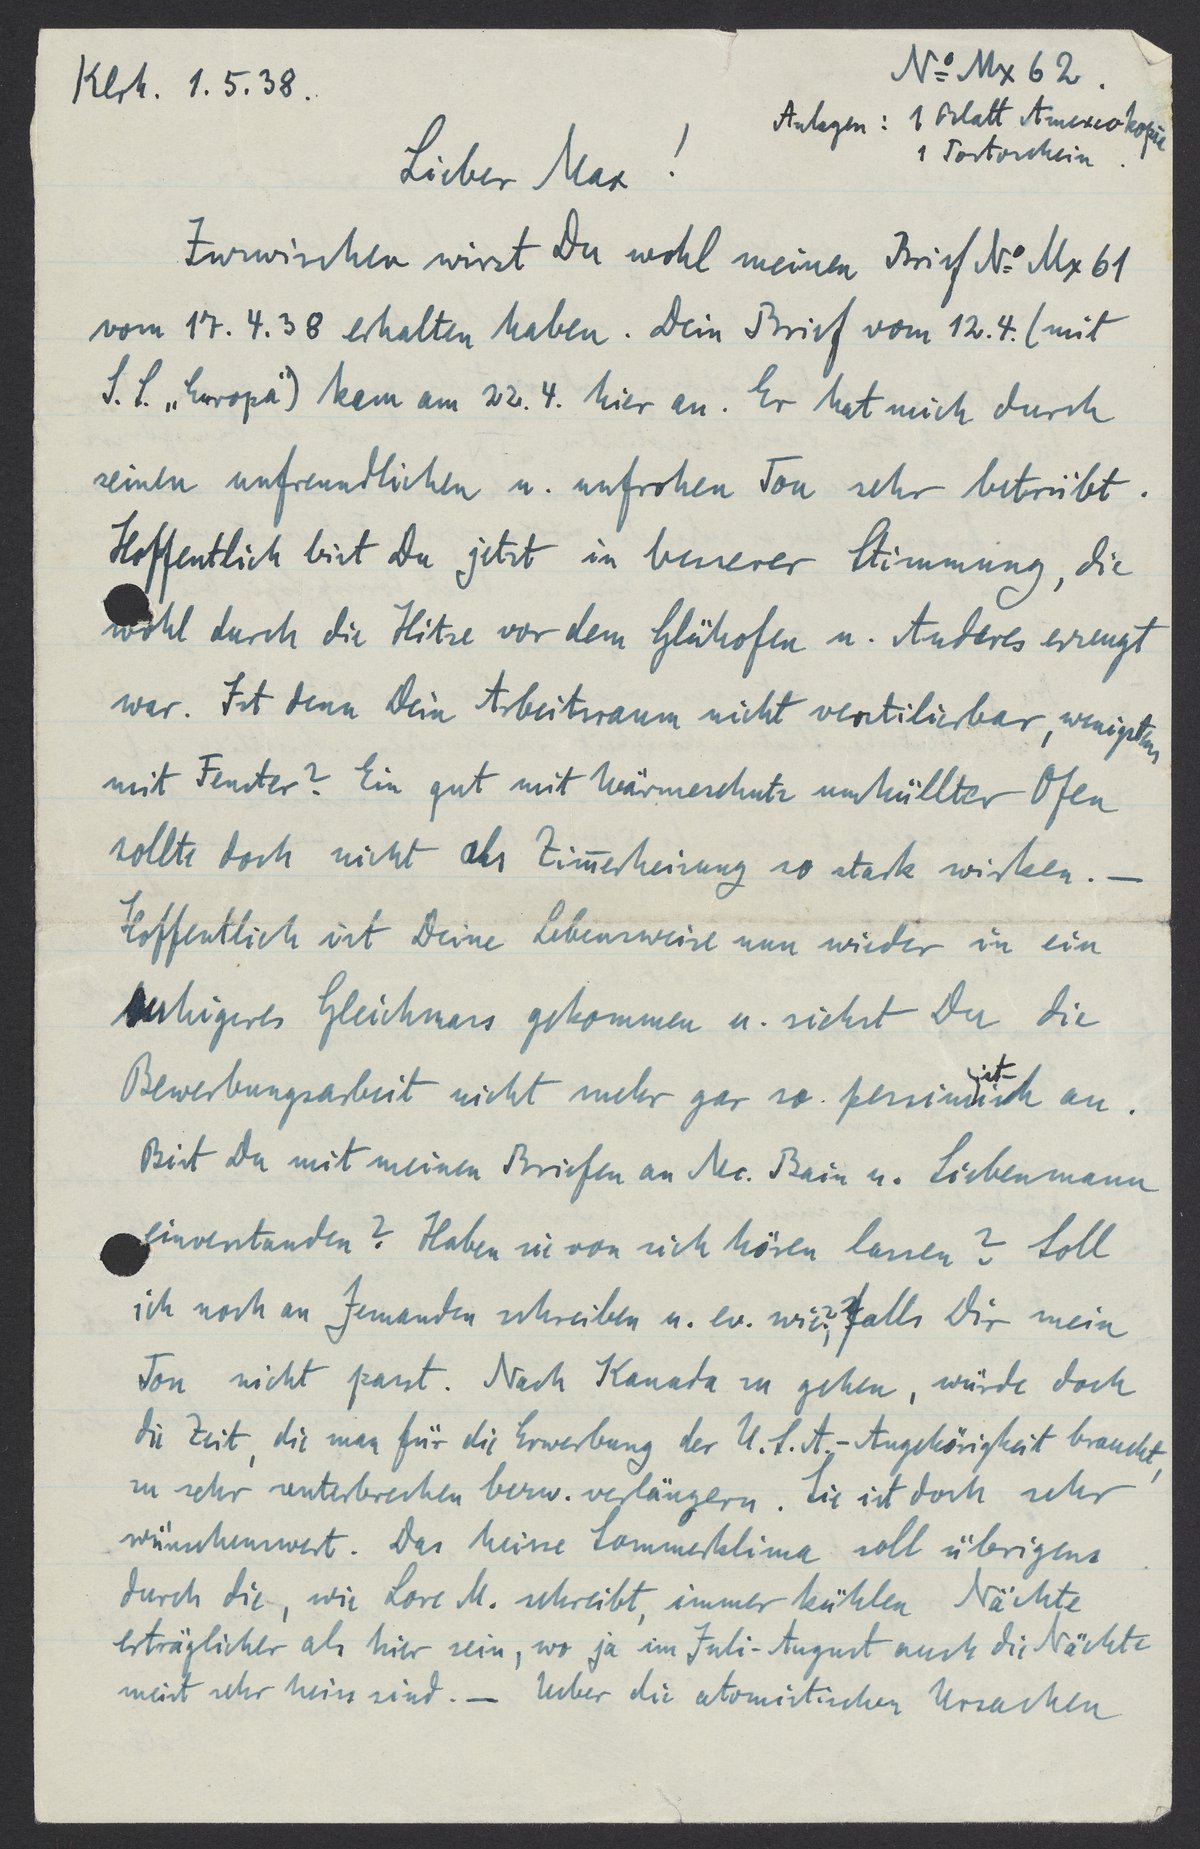 Klrh. 1.5.38.
No Mx 62.
Anlagen: 1 Blatt Amexcokopie
1 Portoschein.
Lieber Max!
Inzwischen wirst Du wohl meinen Brief No Mx 61
vom 17.4.38 erhalten haben. Dein Brief vom 12.4. (mit
S.S. „Europa") kam am 22.4. hier an. Er hat mich durch
seinen unfreundlichen u. unfrohen Ton sehr betrübt.
Hoffentlich bist Du jetzt in besserer Stimmung, die
wohl durch die Hitze vor dem Glühofen u. Anderes erzeugt
war. Ist denn Dein Arbeitsraum nicht ventilierbar, wenigstens
mit Fenster? Ein gut mit Wärmeschutz umhüllter Ofen
sollte doch nicht als Zim̅erheizung so stark wirken. —
Hoffentlich ist Deine Lebensweise nun wieder in ein
ruhigeres Gleichmass gekommen u. siehst Du die
Bewerbungsarbeit nicht mehr gar so pessimistisch an.
Bist Du mit meinen Briefen an Mc. Bain u. Liebenmann
einverstanden? Haben sie von sich hören lassen? Soll
ich noch an Jemanden schreiben u. ev. wie?, falls Dir mein
Ton nicht passt. Nach Kanada zu gehen, würde doch
die Zeit, die man für die Erwerbung der U.S.A.-Angehörigkeit braucht,
zu sehr unterbrechen bezw. verlängern. Sie ist doch sehr
wünschenswert. Das heisse Sommerklima soll übrigens
durch die, wie Lore M. schreibt, immer kühlen Nächte
erträglicher als hier sein, wo ja im Juli-August auch die Nächte
meist sehr heiss sind. — Ueber die atomistischen Ursachen